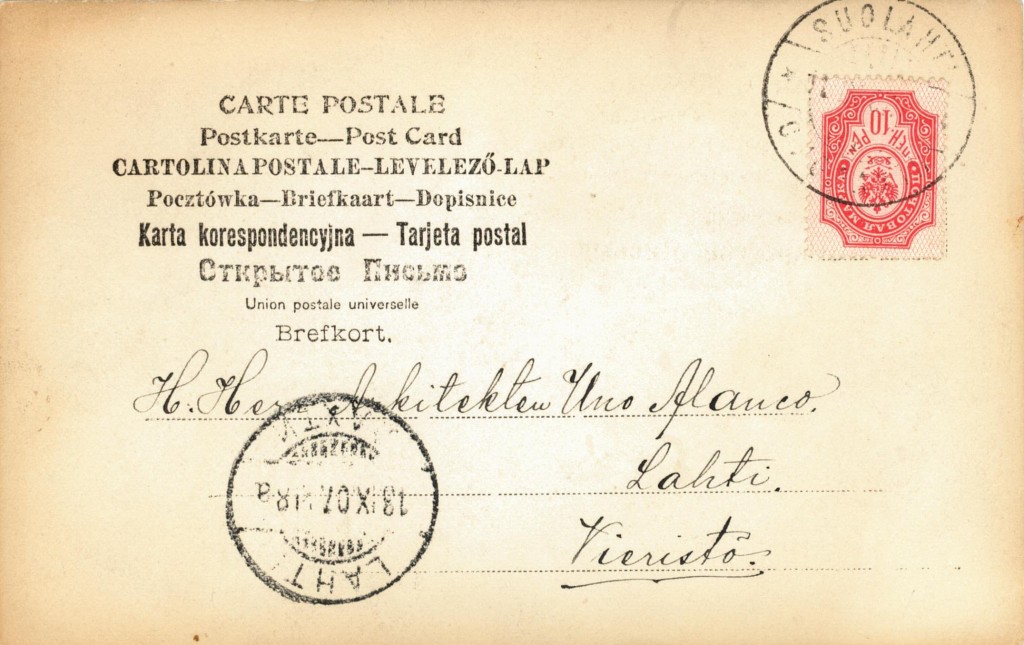 CARTE POSTALE
Postkarte—Post Card
CARTOLINA POSTALE–LEVELEZŐ-LAP
Pocztówka—Briefkaart—Dopisnice
Karta korespondencyjna — Tarjeta postal
Открытое Письмо
Union postale universelle
Brefkort.
SUOLAHTI
10
ПЕН РЕМ.
ПОЧТОВАЯ МАРКА
H. Herr Arkitekten Uno Alanco.
Lahti.
Vieristö.
LAHTI
18.IX.07